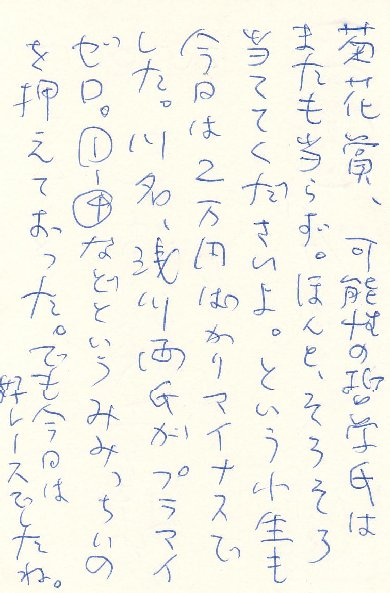 菊花賞、可能性の哲学氏は
またも当らず。ほんと、そろそろ
当ててくださいよ。という小生も
今日は2万円ばかりマイナスで
した。川名、浅川両氏がプラマイ
ゼロ。①-④などというみみっちいの
を押えておった。でも今日は
好レースでしたね。